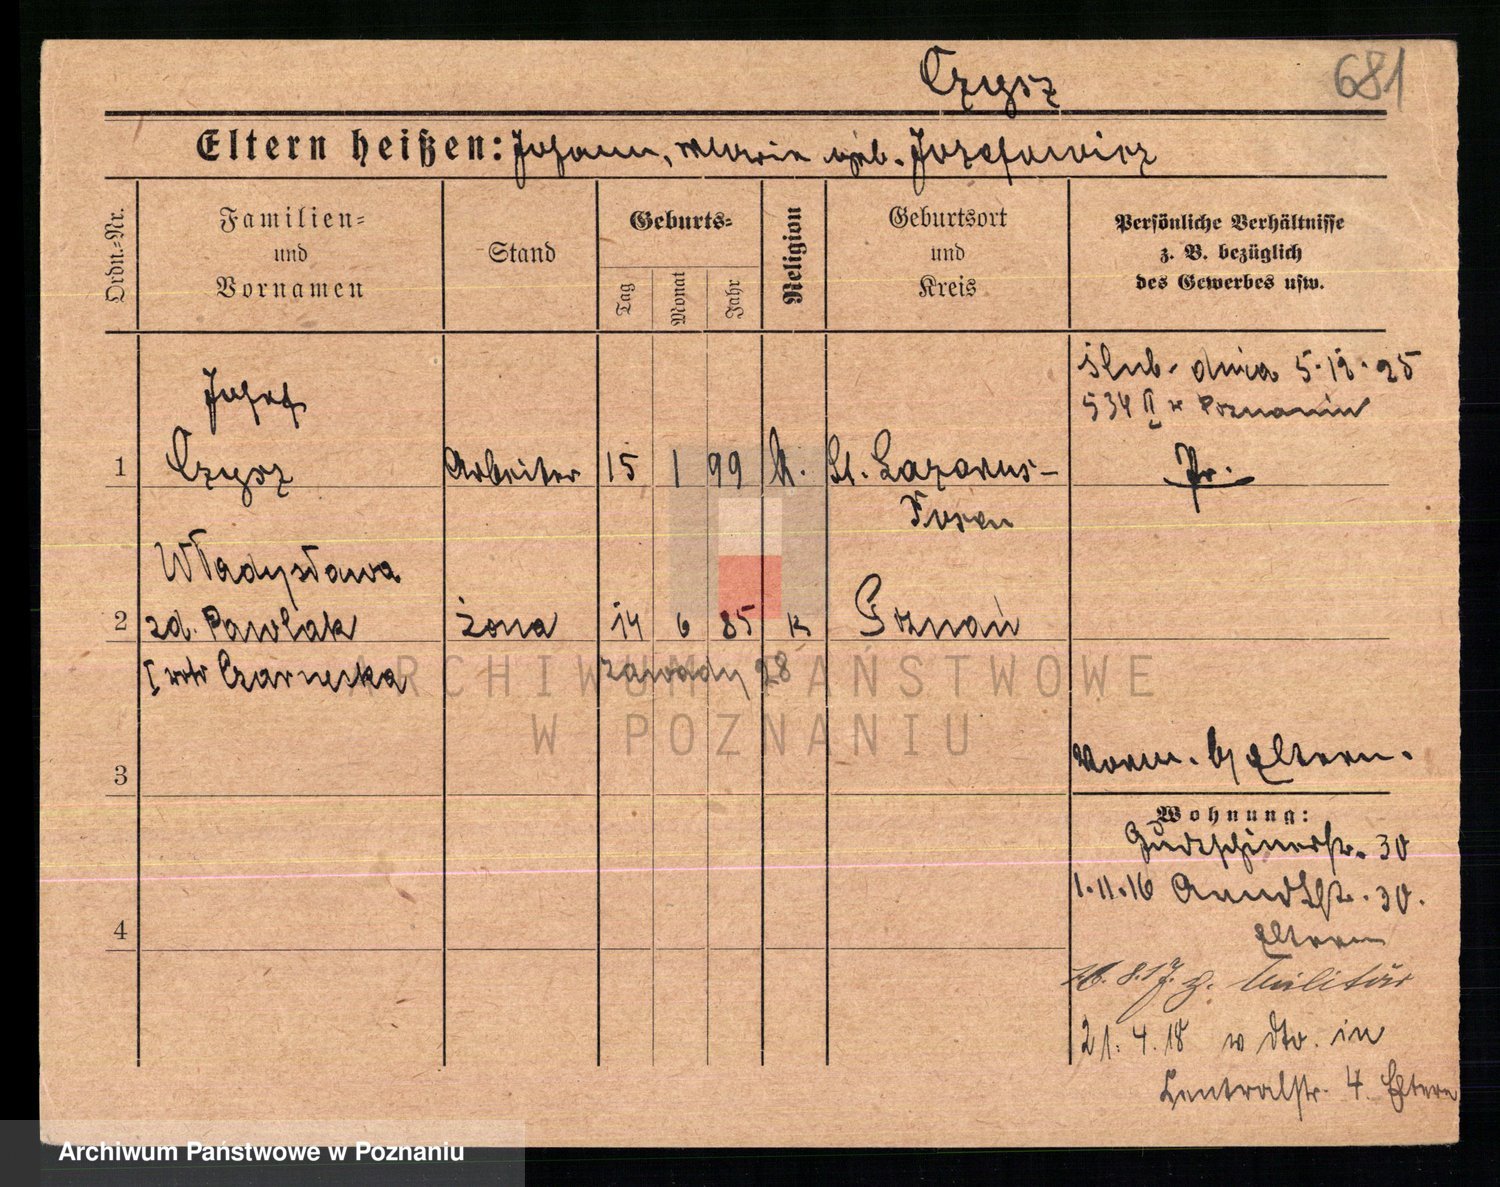 Czysz
681
Eltern heißen: Johann, Marie geb. Jozefowicz
Ordn.-Nr.
Familien-
und
Vornamen
Stand
Geburts-
Tag
Monat
Jahr
Religion
Geburtsort
und
Kreis
Persönliche Verhältnisse
z. B. bezüglich
des Gewerbes usw.
ślub. dnia 5.12.25
534 II w Poznaniu
Pr.
Josef
1 Czysz Arbeiter 15 1 99 k. St. Lazarus-
Posen
Władysława
2 zd. Pawlak żona 14 6 85 k Poznań
I voto Czarnecka zawady 28
ARCHIWUM PAŃSTWOWE
W POZNANIU
3
Vorm. b/ Eltern.
Wohnung:
30
1.11.16 Arndtstr. 30.
4
Eltern
8.17. z. Militär
21.4.18 w dto. in
Zentralstr. 4. Eltern
Archiwum Państwowe w Poznaniu